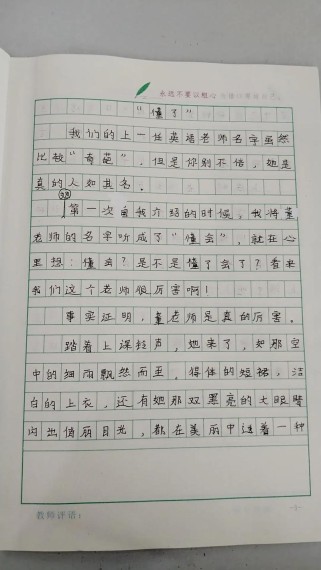 永远不要以粗心
“懂了”
我们的上一任英语老师名字虽然
比较“奇葩”，但是你别不信，她是
真的人如其名。
第一次自我介绍的时候，我将董
老师的名字听成了“懂会”，就在心
里想：懂会？是不是懂了会了？看来
我们这个老师很厉害啊！
事实证明，董老师是真的厉害。
踏着上课铃声，她来了，如那空
中的细雨飘然而至，得体的短裙，洁
白的上衣，还有她那双黑亮的大眼睛
内出俏丽目光，都在美丽中透着一种
教师评语：